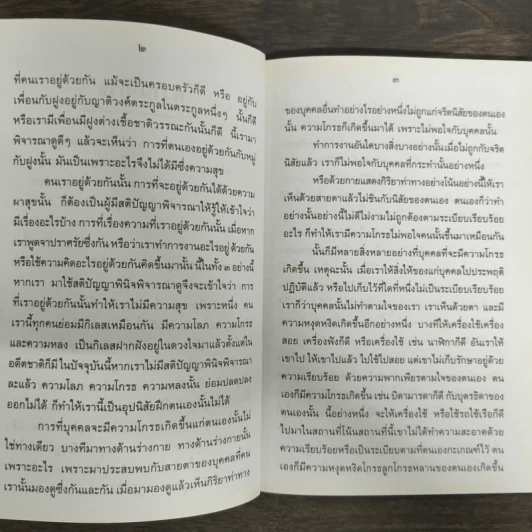 ๒
ที่คนเราอยู่ด้วยกัน แม้จะเป็นครอบครัวก็ดี หรือ อยู่กับ
เพื่อนกับฝูงอยู่กับญาติวงศ์ตระกูลในตระกูลหนึ่งๆ นั้นก็ดี
หรือเรามีเพื่อนมีฝูงต่างเชื้อชาติวรรณะกันนั้นก็ดี นี้เรามา
พิจารณาดูดีๆ แล้วจะเห็นว่า การที่ตนเองอยู่ด้วยกันกับหมู่
กับฝูงนั้น มันเป็นเพราะอะไรจึงไม่ได้มีซึ่งความสุข
คนเราอยู่ด้วยกันนั้น การที่จะอยู่ด้วยกันได้ด้วยความ
ผาสุขนั้น ก็ต้องเป็นผู้มีสติปัญญาพิจารณาให้รู้ให้เข้าใจว่า
มีเรื่องอะไรบ้าง การที่เรื่องความที่เราอยู่ด้วยกันนั้น เมื่อหาก
เราพูดจาปราศรัยซึ่งกัน หรือว่าเราทำการงานอะไรอยู่ ด้วยกัน
หรือใช้ความคิดอะไรอยู่ด้วยกันคิดขึ้นมานั้น นี้ในทั้ง ๓ อย่างนี้
หากเรา มาใช้สติปัญญาพินิจพิจารณาดูจึงจะเข้าใจว่า การ
ที่เราอยู่ด้วยกันนั้นทำให้เราไม่มีความสุข เพราะหนึ่ง คน
เรานี้ทุกคนย่อมมีกิเลสเหมือนกัน มีความโลภ ความโกรธ
และความหลง เป็นกิเลสฝากฝังอยู่ในดวงใจมาแล้วตั้งแต่ใน
อดีตชาติก็มี ในปัจจุบันนี้หากเราไม่มีสติปัญญาพินิจพิจารณา
ละแล้ว ความโลภ ความโกรธ ความหลงนั้น ย่อมปลดปลง
ออกไม่ได้ ก็ทำให้เรานี้เป็นอุปนิสัยฝึกตนเองนั้นไม่ได้
การที่บุคคลจะมีความโกรธเกิดขึ้นแก่ตนเองนั้นไม่
ใช่ทางเดียว บางทีมาทางด้านร่างกาย ทางด้านร่างกายนั้น
เพราะอะไร เพราะมาประสบพบกับสายตาของบุคคลที่คน
เรานั้นมองดูซึ่งกันและกัน เมื่อมามองดูแล้วเห็นกิริยาท่าทาง
๓
ของบุคคลอื่นทำอย่างไรอย่างหนึ่งไม่ถูกแก่จริตนิสัยของตนเอง
นั้น ความโกรธก็เกิดขึ้นมาได้ เพราะไม่พอใจกับบุคคลนั้น
ทำการงานอันใดบางสิ่งบางอย่างนั้นเมื่อไม่ถูกกับจริต
นิสัยแล้ว เราก็ไม่พอใจกับบุคคลที่กระทำนั้นอย่างหนึ่ง
หรือด้วยกายแสดงกิริยาท่าทางอย่างโน้นอย่างนี้ให้เรา
เห็นด้วยสายตาแล้วไม่ชินกับนิสัยของตนเอง ตนเองก็ว่าทำ
อย่างนั้นอย่างนี้ไม่ดีไม่งามไม่ถูกต้องตามระเบียบเรียบร้อย
อะไร ก็ทำให้เรามีความโกรธไม่พอใจคนนั้นขึ้นมาเหมือนกัน
นั้นก็มีหลายสิ่งหลายอย่างที่บุคคลที่จะมีความโกรธ
เกิดขึ้น เหตุฉะนั้น เมื่อเราให้สิ่งให้ของแก่บุคคลไปประพฤติ
ปฏิบัติแล้ว หรือไปเก็บไว้ที่ใดที่หนึ่งไม่เป็นระเบียบเรียบร้อย
เราก็ว่าบุคคลนั้นไม่ทำตามใจของเรา เราเห็นด้วยตา และมี
ความหงุดหงิดเกิดขึ้นอีกอย่างหนึ่ง บางทีให้เครื่องใช้เครื่อง
สอย เครื่องฟังก็ดี หรือเครื่องใช้ เช่น นาฬิกาก็ดี อันเราให้
เขาไป ให้เขาไปแล้ว ไปใช้ไปสอย แต่เขาไม่เก็บรักษาอยู่ด้วย
ความเรียบร้อย ด้วยความพากเพียรตามใจของตนเอง ตน
เองก็มีความโกรธเกิดขึ้น เช่น บิดามารดาก็ดี กับบุตรธิดาของ
ตนเองนั้น นี้อย่างหนึ่ง จะให้เครื่องใช้ หรือใช้รถใช้เรือก็ดี
ไปมาในสถานที่โน้นสถานที่นี้เขาไม่ได้ทำความสะอาดด้วย
ความเรียบร้อยหรือเป็นระเบียบตามที่ตนเองกะเกณฑ์ไว้ ตน
เองก็มีความหงุดหงิดโกรธลูกโกรธหลานของตนเองเกิดขึ้น